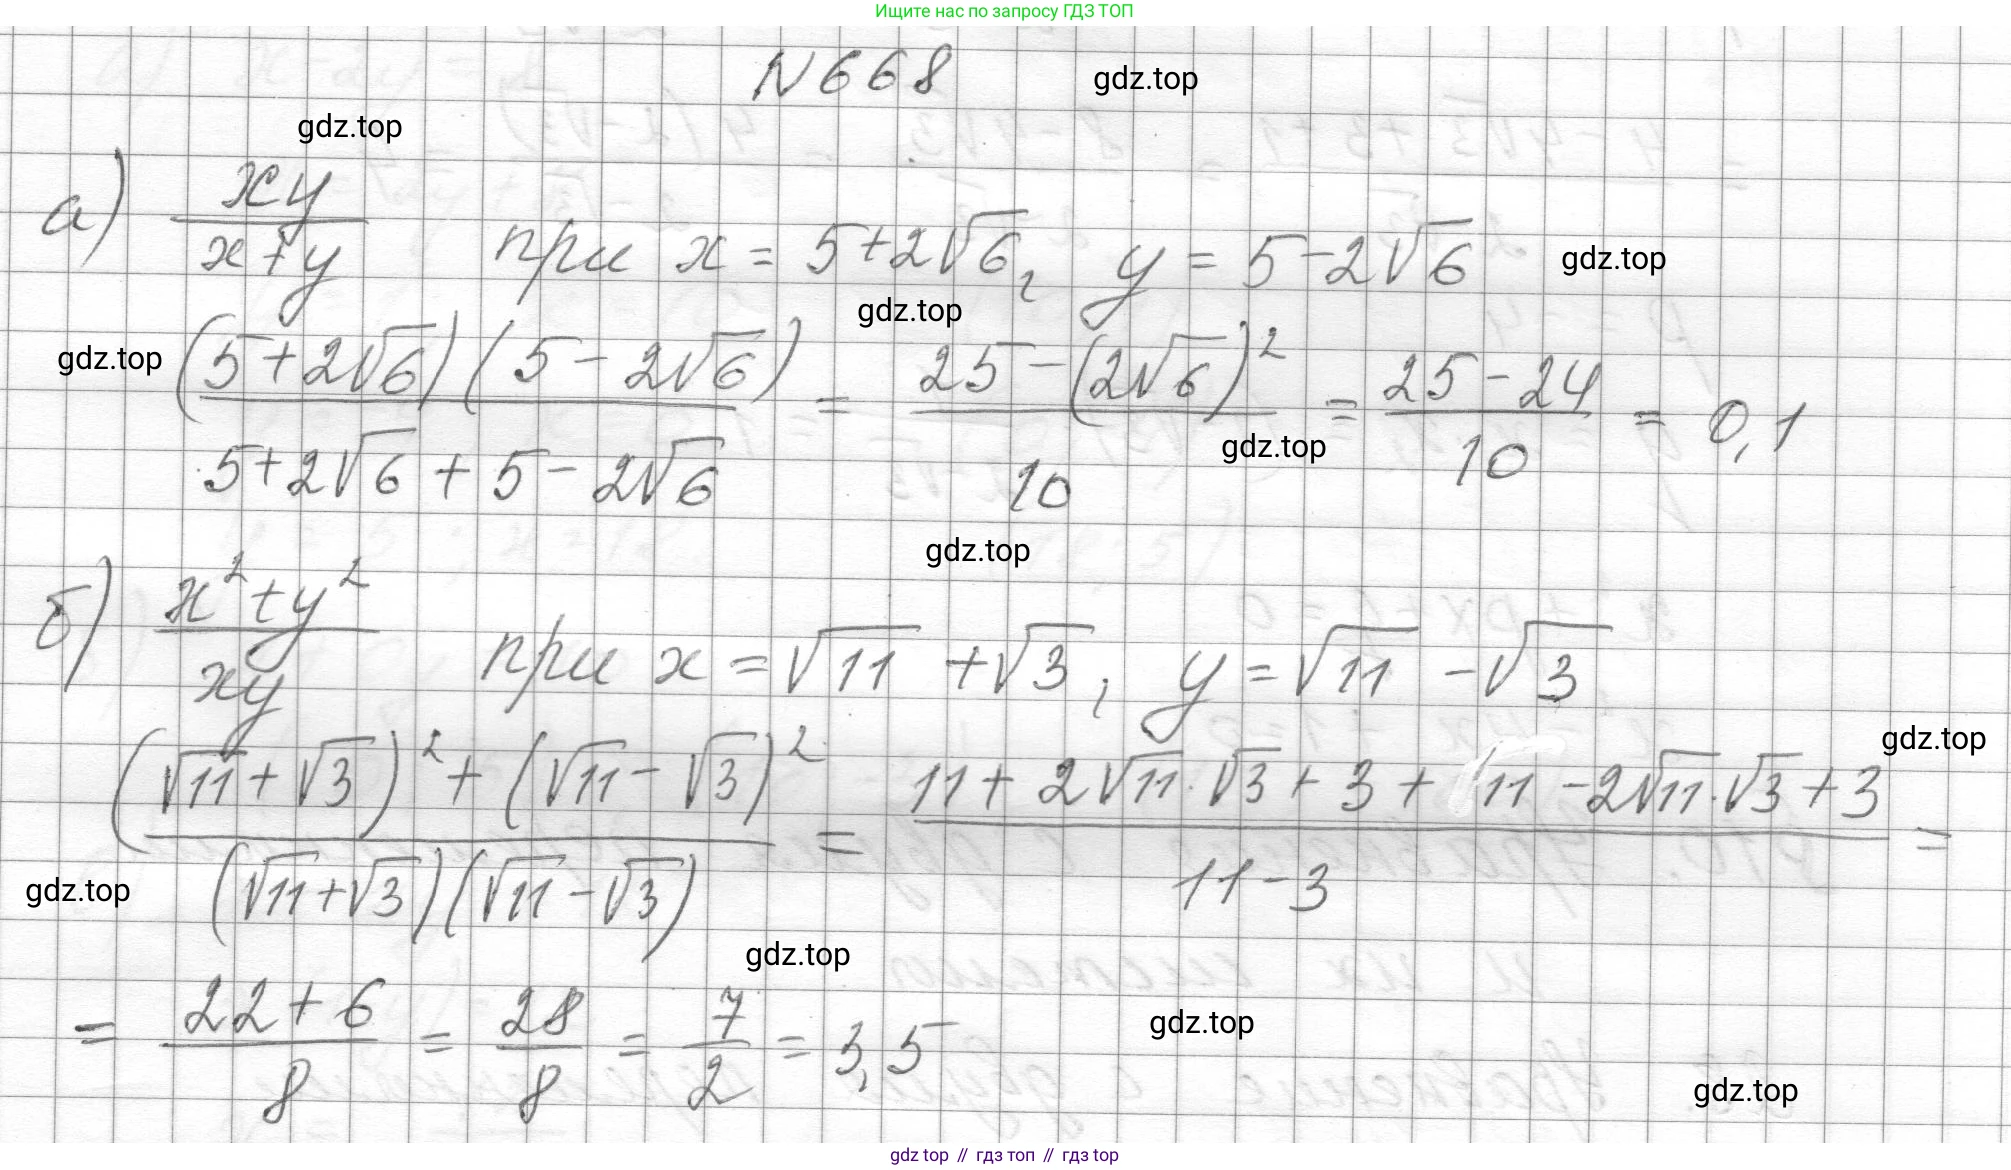 Ищите нас по запросу ГДЗ ТОП
N 668
gdz.top
gdz.top
а) xy / (x+y) при x = 5+2√6, y = 5-2√6
gdz.top
gdz.top
gdz.top
(5+2√6)(5-2√6) / (5+2√6+5-2√6) = (25-(2√6)²) / 10 = (25-24) / 10 = 0,1
gdz.top
gdz.top
б) (x²+y²) / xy при x = √11 + √3, y = √11 - √3
gdz.top
((√11+√3)² + (√11-√3)²) / ((√11+√3)(√11-√3)) = (11+2√11·√3+3+11-2√11·√3+3) / (11-3) =
gdz.top
gdz.top
= (22+6) / 8 = 28 / 8 = 7 / 2 = 3,5
gdz.top
gdz.top
gdz top // гдз топ // гдз top